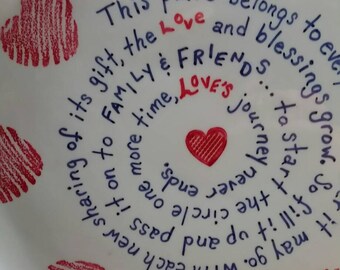 This belongs to every
it may go. With each new sharing of its gift, the Love and blessings grow. So fill it up and pass it on to FAMILY & FRIENDS... to start the circle one more time, LOVE'S journey never ends.